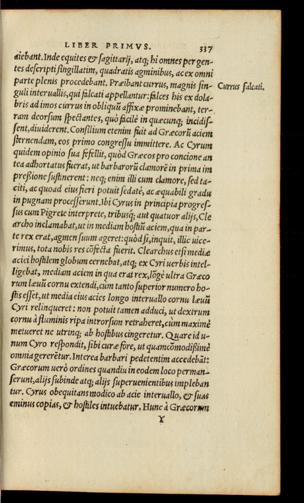 LIBER PRIMVS. 337
aiebant. Inde equites & sagittarij, atq; hi omnes per gen-
tes descripti singillatim, quadratis agminibus, ac ex omni
parte plenis procedebant. Præibant currus, magnis sin-
Currus falcati.
guli interuallis, qui falcati appellantur: falces his ex dola-
bris ad imos currus in obliquũ affixæ prominebant, ter-
ram deorsum spectantes, quò facilè in quæcunq; incidis-
sent, diuiderent. Consilium etenim fuit ad Græcorũ aciem
sternendam, eos primo congressu immittere. Ac Cyrum
quidem opinio sua fefellit, quòd Græcos pro concione an
tea adhortatus fuerat, ut barbarorũ clamorẽ in prima im
pressione sustinerent: neq; enim illi cum clamore, sed ta-
citi, ac quoad eius fieri potuit sedatè, ac æquabili gradu
in pugnam processerunt. Ibi Cyrus in principia progres-
sus cum Pigrete interprete, tribusq́; aut quatuor alijs, Cle
archo inclamabat, ut in mediam hostiũ aciem, qua in par-
te rex erat, agmen suum ageret: quòd si, inquit, illic uice-
rimus, tota nobis res cõfecta fuerit. Clearchus etsi mediæ
aciei hostilem globum cernebat, atq; ex Cyri uerbis intel-
ligebat, mediam aciem in qua erat rex, lõgè ultra Græco
rum læuũ cornu extendi, cum tanto superior numero ho-
stis esset, ut media eius acies longo interuallo cornu læuũ
Cyri relinqueret: non potuit tamen adduci, ut dextrum
cornu à fluminis ripa introrsum retraheret, cum maximè
metueret ne utrinq; ab hostibus cingeretur. Quare id u-
num Cyro respondit, sibi curæ fore, ut quamcõmodissimè
omnia gererẽtur. Interea barbari pedetentim accedebãt:
Græcorum uerò ordines quandiu in eodem loco perman-
serunt, alijs subinde atq; alijs superuenientibus impleban
tur. Cyrus obequitans modico ab acie interuallo, & suas
eminus copias, & hostiles intuebatur. Hunc à Græcorum
Y